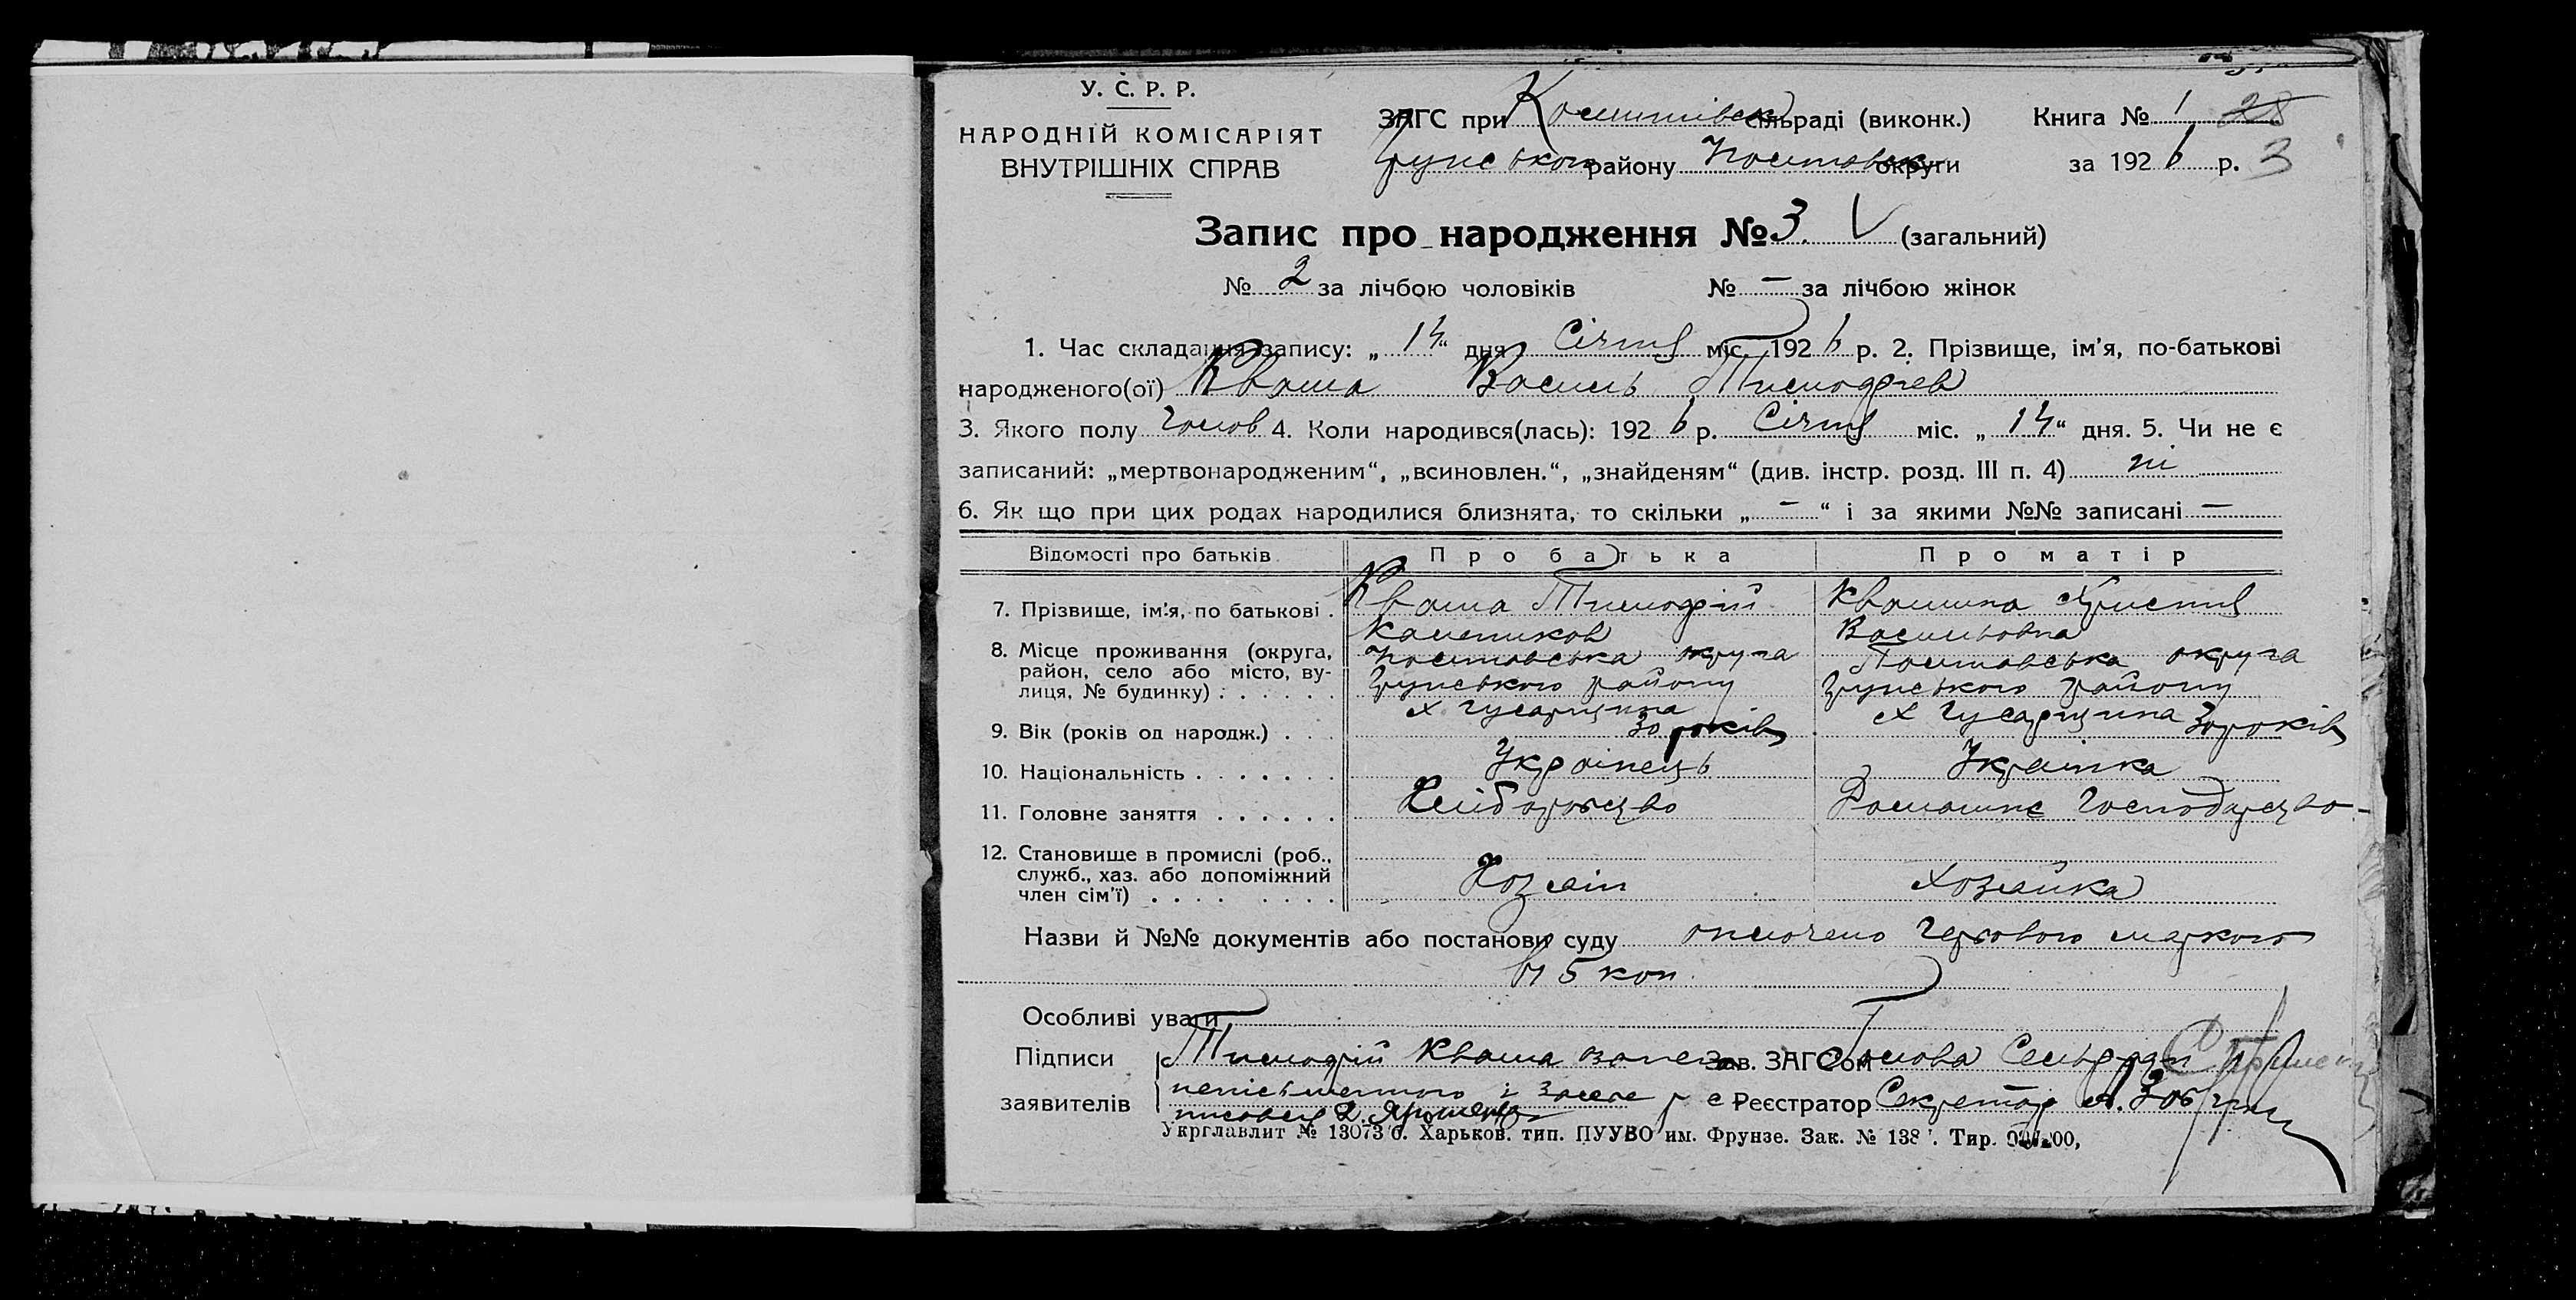 У. С. Р. Р.
НАРОДНІЙ КОМІСАРІЯТ
ВНУТРІШНІХ СПРАВ
ЗАГС при сільраді (виконк.) Книга № 1 28
Грунського району Полтавськ округи за 1926 р. 3
Запис про народження № 3. V (загальний)
№ 2 за лічбою чоловіків № — за лічбою жінок
1. Час складання запису: „ 14 “ дня Січня міс. 1926 р. 2. Прізвище, ім’я, по-батькові
народженого(ої) Кваша Василь Тимофієв
3. Якого полу чолов 4. Коли народився(лась): 1926 р. Січня міс. „ 14 “ дня. 5. Чи не є
записаний: „мертвонародженим“, „всиновлен.“, „знайденям“ (див. інстр. розд. III п. 4) ні
6. Як що при цих родах народилися близнята, то скільки „ — “ і за якими №№ записані —
Відомості про батьків Про батька Про матір
7. Прізвище, ім’я, по батькові . Кваша Тимофій Квашина Христия
Калеників Васильовна
8. Місце проживання (округа, Полтавська округа Полтавська округа
район, село або місто, ву-
лиця, № будинку) . . . . . . Грунського району Грунського району
х Гусарщина х Гусарщина
9. Вік (років од народж.) . . . 30 років 30 років
10. Національність . . . . . . . Українець Українка
11. Головне заняття . . . . . . Хліборобство Домашнє Господарство
12. Становище в промислі (роб.,
служб., хаз. або допоміжний Хозяін Хозяйка
член сім’ї) . . . . . . . .
Назви й №№ документів або постанови суду оплочено Гербового маркою
в 5 коп.
Особливі уваги
Підписи Тимофій Кваша Зав. ЗАГСом Голова Сельради
неписьменного і за себе
заявителів Реєстратор Секретар
Укрглавлит № 13073 б. Харьков. тип. ПУУВО им. Фрунзе. Зак. № 138 . Тир.